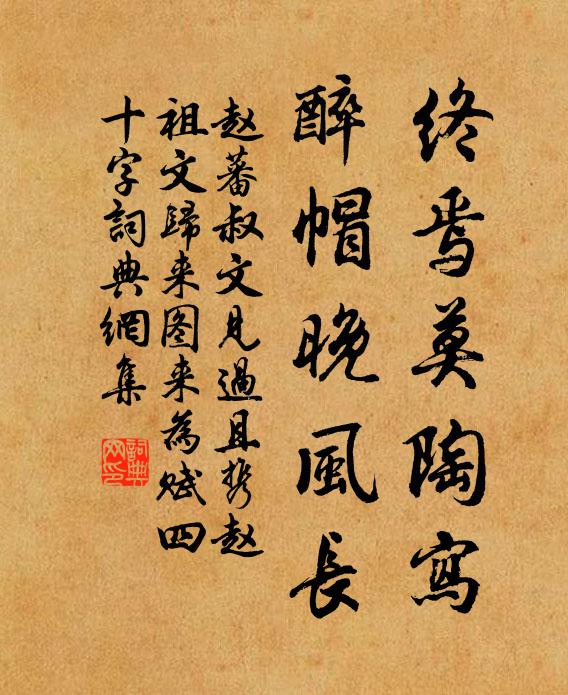 终焉莫陶寫
醉帽晚風長
赵蕃叔文見過且携赵
祖文歸来图来為赋四
十字詞典網集
詞典网印